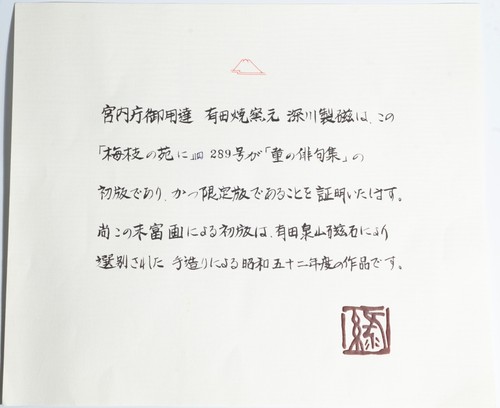 宮内庁御用達 有田焼窯元 深川製磁は、この
「梅枝の苑に皿289号が「童の俳句集」の
初版であり、かつ限定版であることを証明いたします。
尚この未富画による初版は、有田泉山磁石により
選別された 手造りによる昭和五十二年度の作品です。